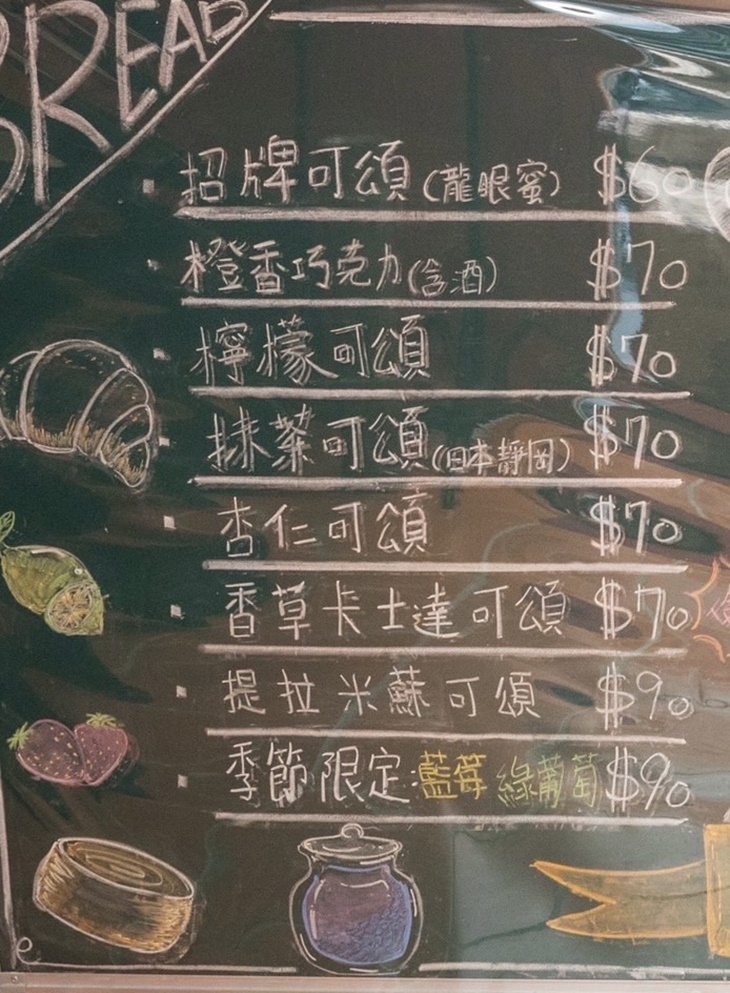 BREAD
招牌可頌(龍眼蜜) $60
橙香巧克力(含酒) $70
檸檬可頌 $70
抹茶可頌(日本靜岡) $70
杏仁可頌 $70
香草卡士達可頌 $70
提拉米蘇可頌 $90
季節限定:藍莓 綠葡萄 $90